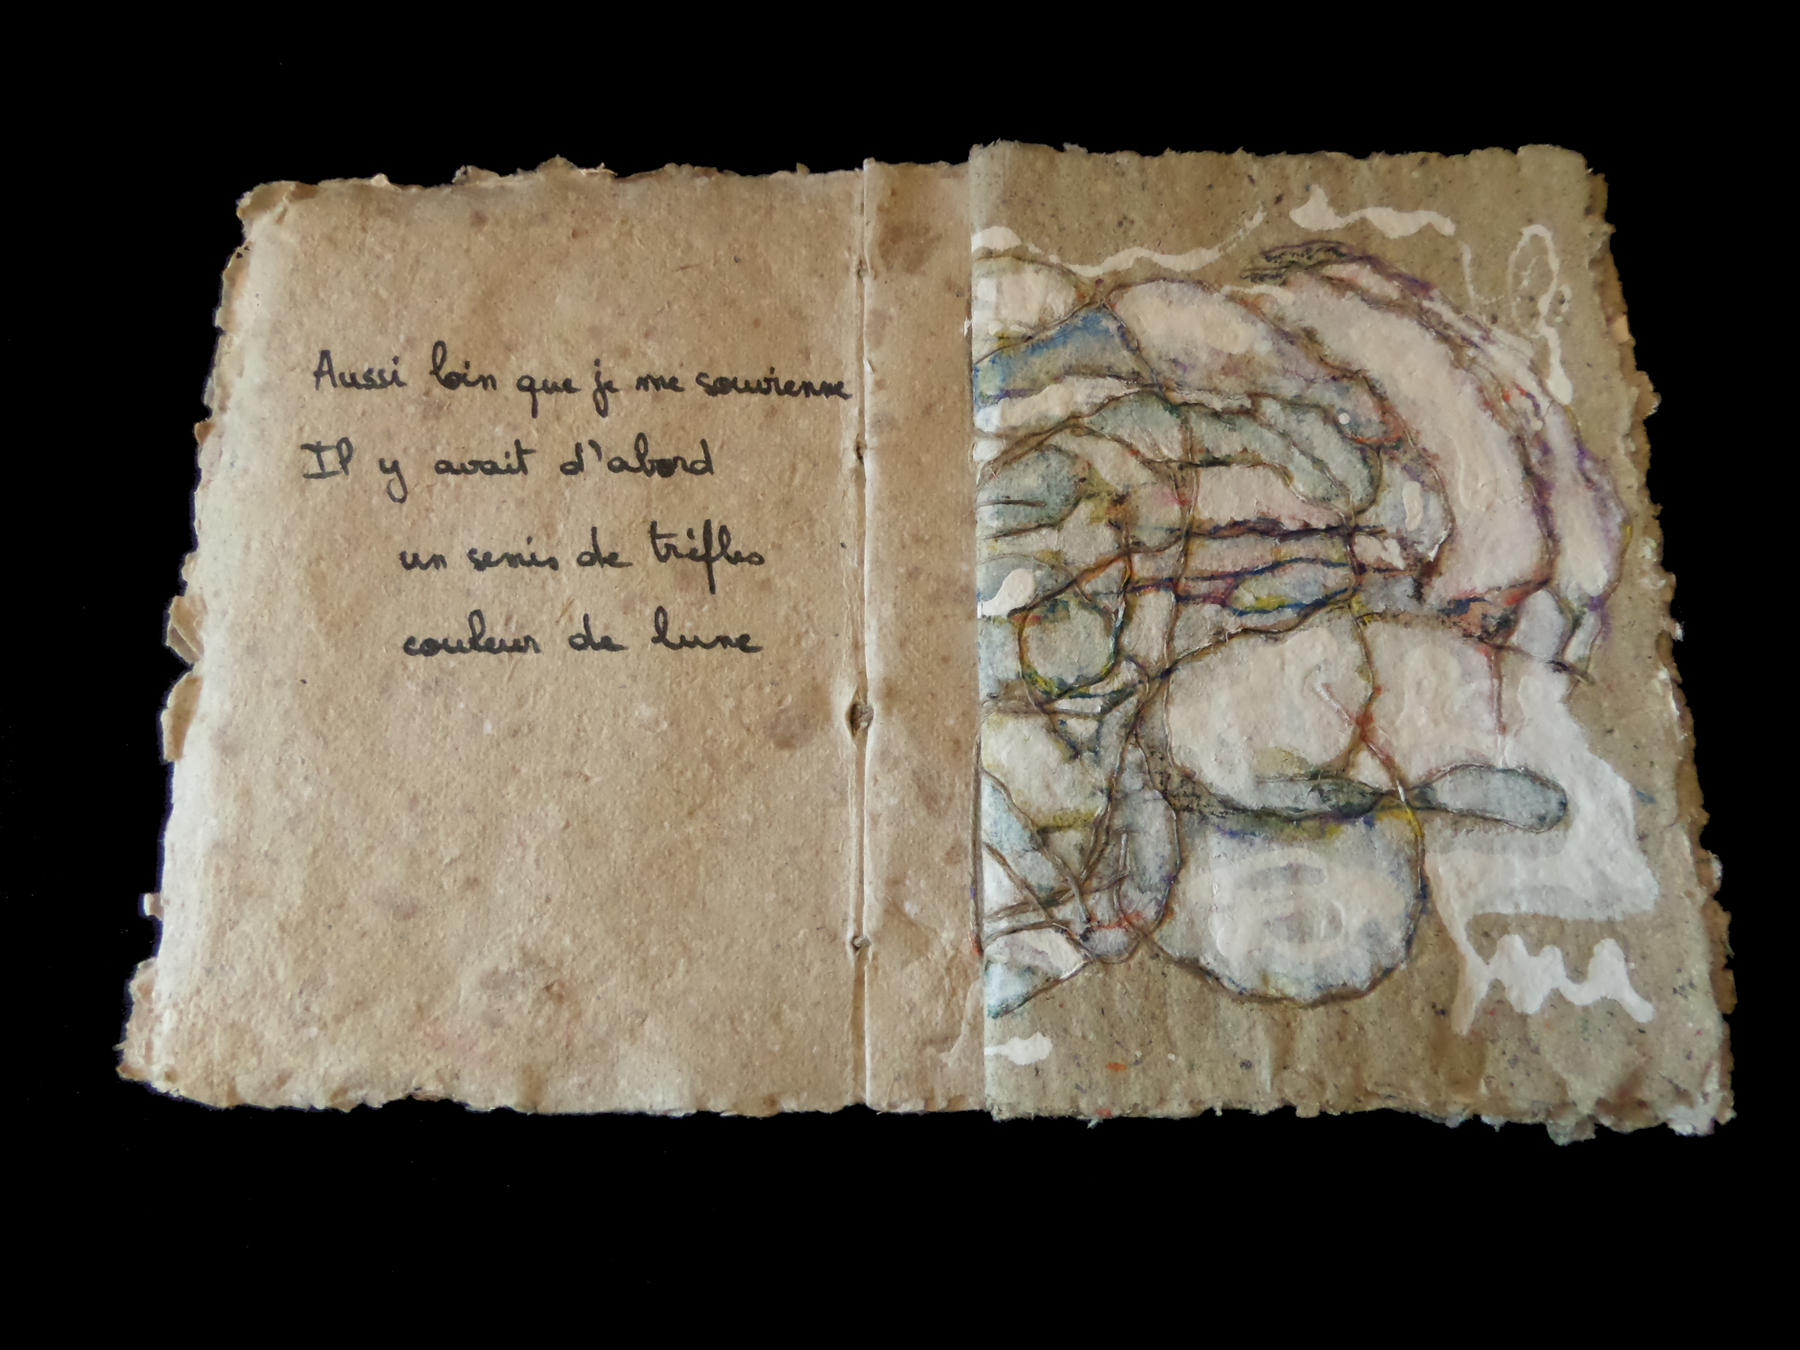 Aussi loin que je me souvienne
Il y avait d'abord
un semis de trèfles
couleur de lune